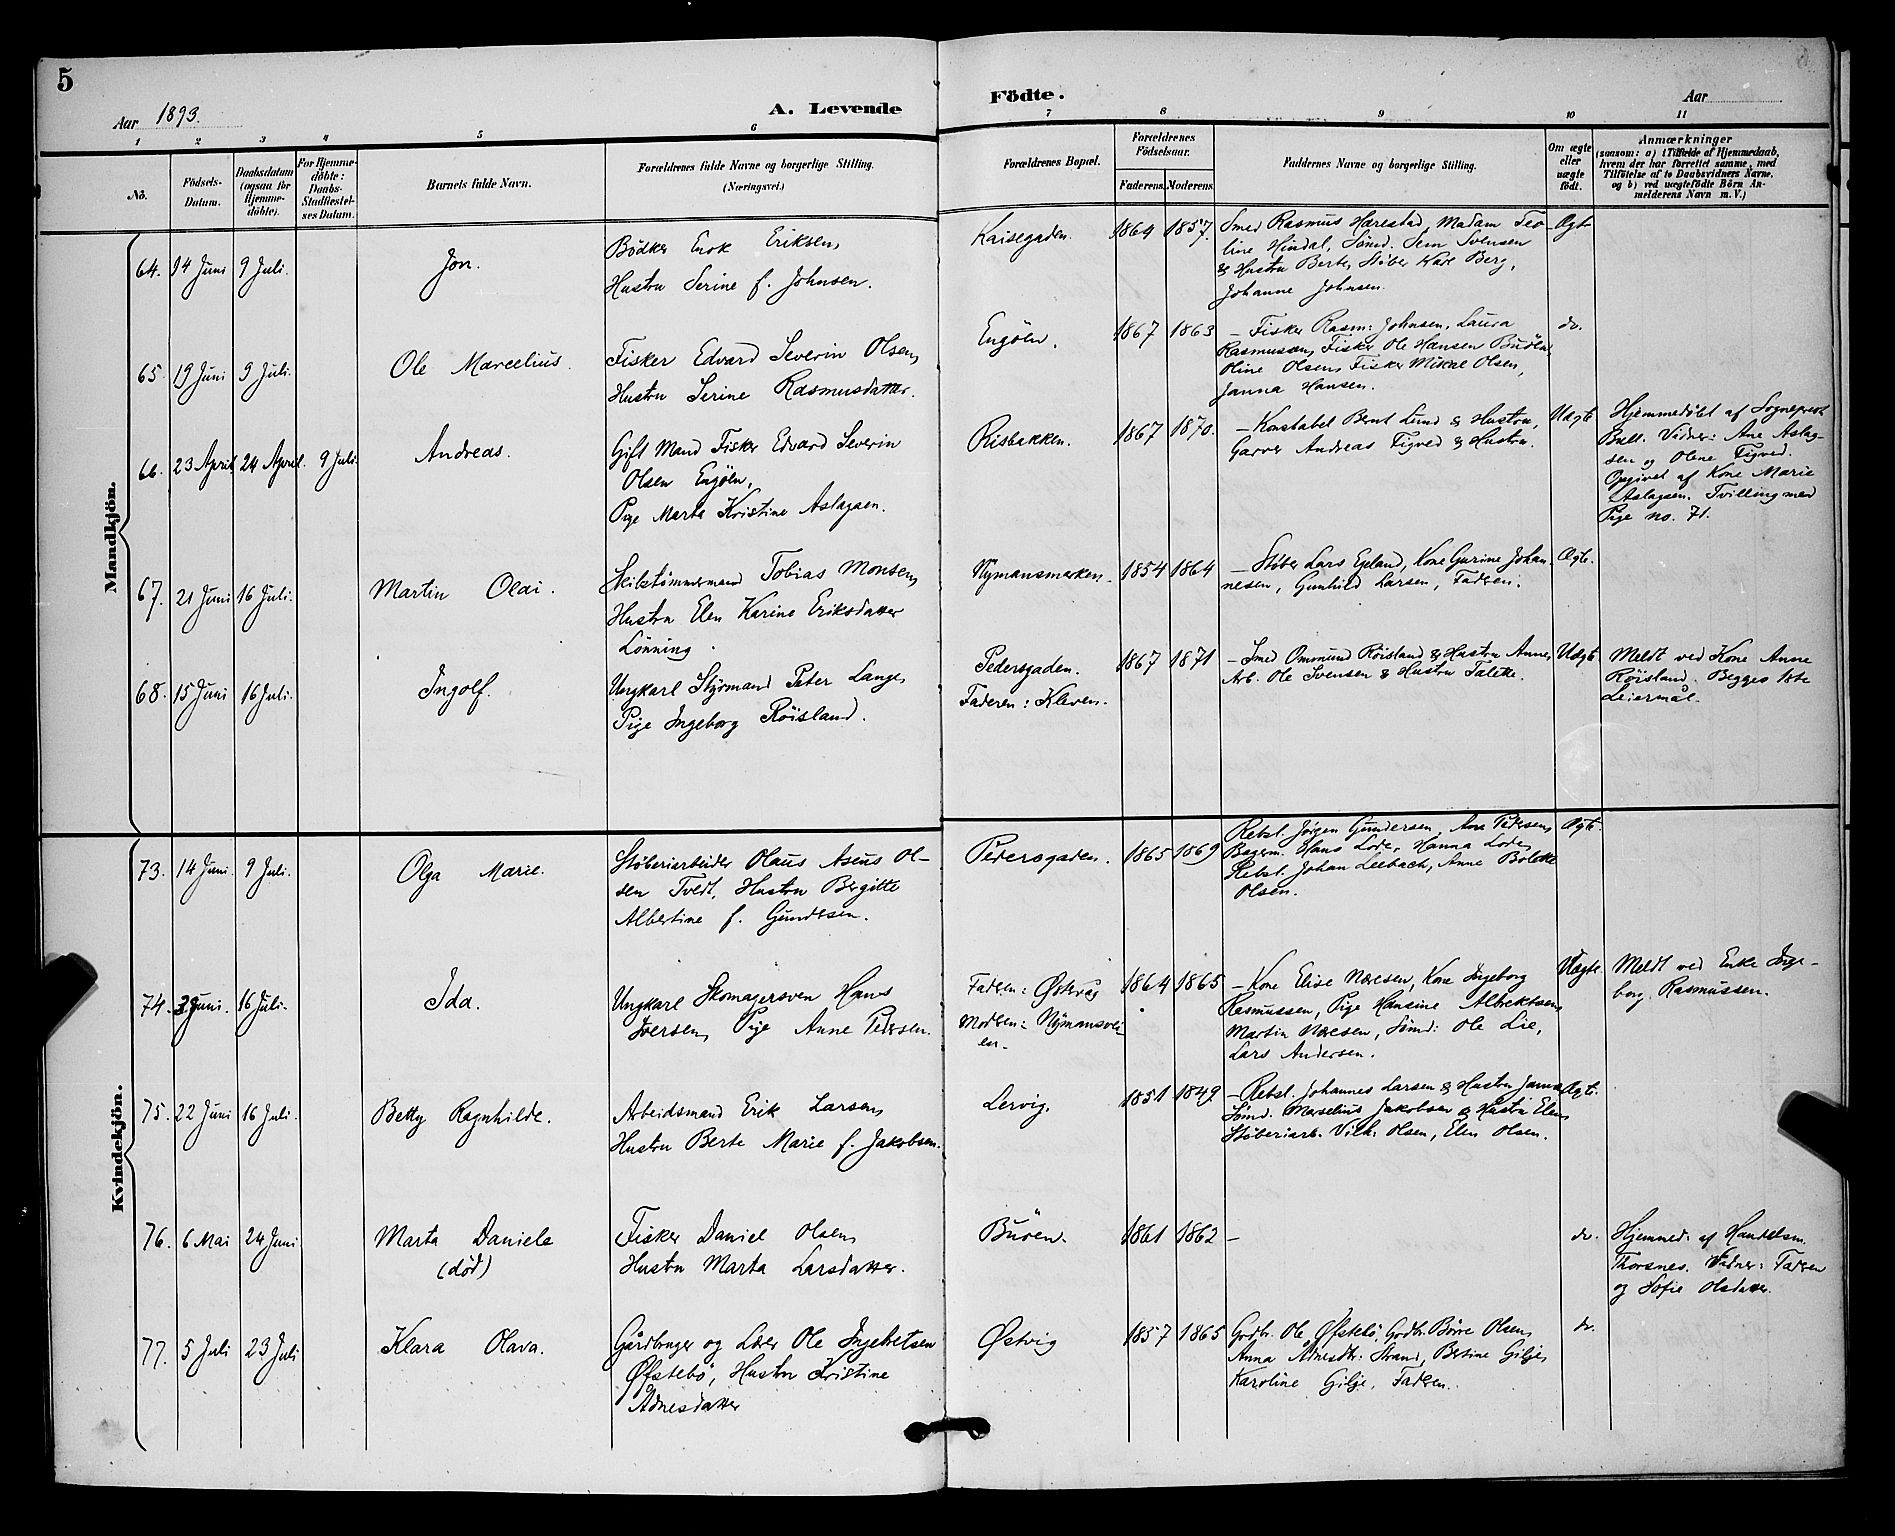 5
Aar 1893.
A. Levende
Födte.
Aar
1
2
3
4
5
6
7
8
9
10
11
No.
Födsels-
Datum.
Daabsdatum
(ogsaa for
Hjemme-
döbte).
For Hjemme-
döbte:
Daabs-
Stadfæstel-
ses Datum.
Barnets fulde Navn.
Forældrenes fulde Navne og borgerlige Stilling.
(Næringsvei.)
Forældrenes Bopæl.
Forældrenes
Födselsaar.
Faderens.
Moderens.
Faddernes Navne og borgerlige Stilling.
Om ægte
eller
uægte
födt.
Anmærkninger
(saasom: a) i Tilfælde af Hjemmedaab,
hvem der har forrettet samme, med
Tilföielse af to Daabsvidners Navne,
og b) ved uægtefödte Börn An-
melderens Navn m. V.)
Mandkjön.
64.
14 Juni
9 Juli.
Jon.
Bødker Enok Eriksen,
Hustru Serine f. Johnsen.
Kaisegaden.
1864
1857.
Smed Rasmus Hærestad, Madam Teo-
line Hindal, Sømd. Sem Svensen
& Hustru Berte, Støber Kare Berg,
Johanne Johnsen.
Ægt
65.
19 Juni
9 Juli.
Ole Marcelius.
Fisker Edvard Severin Olsen,
Hustru Serine Rasmusdatter.
Engöen.
1867
1863
– Fisker Rasm: Johnsen, Laura
Rasmussen, Fisker Ole Hansen Buöen,
Oline Olsen, Fisker Mikal Olsen,
Janna Hansen.
do.
66.
23 April
24 April.
9 Juli.
Andreas.
Gift Mand Fisker Edvard Severin
Olsen Engöen,
Pige Marta Kristine Aslagsen.
Risbakken.
1867
1870.
– Konstabel Bernt Lund & Hustru,
Garver Andreas Tigved & Hustru.
Uægt
Hjemmedöbt af Sogneprest
Bull. Vidner: Ane Aslag-
sen og Olene Tigved.
Opgivet af Kone Marie
Aslagsen. Tvilling med
Pige no. 71.
67.
21 Juni
16 Juli.
Martin Olai.
Skibstømmermand Tobias Monsen,
Hustru Elen Karine Eriksdatter
Lönning.
Nymansmarken.
1854
1864
– Støber Lars Egeland, Kone Gurine Johan-
nesen, Gunhild Larsen, Faderen.
Ægte.
68.
15 Juni
16 Juli.
Ingolf.
Ungkarl Styrmand Peter Lange,
Pige Ingeborg Röisland.
Pedersgaden.
Faderen: Kleven.
1867
1871
– Smed Ommund Röisland & Hustru Anne,
Arb. Ole Svensen & Hustru Taletke.
Uægt
Meldt ved Kone Anne
Röisland. Begges 1ste
Leiermål.
Kvindekjön.
73.
14 Juni
9 Juli.
Olga Marie.
Støberiarbeider Olaus Aseus Ol-
sen Tvedt, Hustru Bergitte
Albertine f. Gundesen.
Pedersgaden.
1865
1869
Rebsl. Jörgen Gundersen, Ana Pedersen,
Bagerm. Hans Lode, Hanna Lode,
Rebsl. Johan Leebach, Anne Bolette
Olsen.
Ægte.
74.
Juni.
16 Juli.
Ida.
Ungkarl Skomagersven Hans
Iversen, Pige Anne Pedersen.
Faderen: Østervåg
Moderen: Nymansvei-
en.
1864
1865
– Kone Elise Næesen, Kone Ingeborg
Rasmussen, Pige Hansine Albrektsen,
Martin Næesen, Sømd: Ole Lie,
Lars Andersen.
Uægte.
Meldt ved Enke Inge-
borg Rasmussen.
75.
22 Juni
16 Juli.
Betty Ragnhilde.
Arbeidsmand Erik Larsen,
Hustru Berte Marie f. Jakobsen.
Lervig.
1851
1849.
– Rebsl. Johannes Larsen & Hustru Janna,
Sømd. Marselius Jakobsen & Hustru Elen,
Støberiarb. Vilh. Olsen, Elen Olsen.
Ægte.
76.
6 Mai
24 Juni
Marta Daniele
(död)
Fisker Daniel Olsen,
Hustru Marta Larsdatter.
Buöen.
1861
1862
–
do.
Hjemmed. af Handelsm.
Thorsnes. Vidner: Faderen
og Sofie Olsdatter.
77.
5 Juli
23 Juli
Klara Olava.
Gårdbruger og Lærer Ole Ingebretsen
Øfstebö, Hustru Kristine
Adnesdatter
Østvig
1857
1865
Grdbr. Ole Øfstebö, Grdbr. Börre Olsen,
Anna Adnesdtr. Strand, Bertine Gilje,
Karoline Gilje, Faderen.
do.